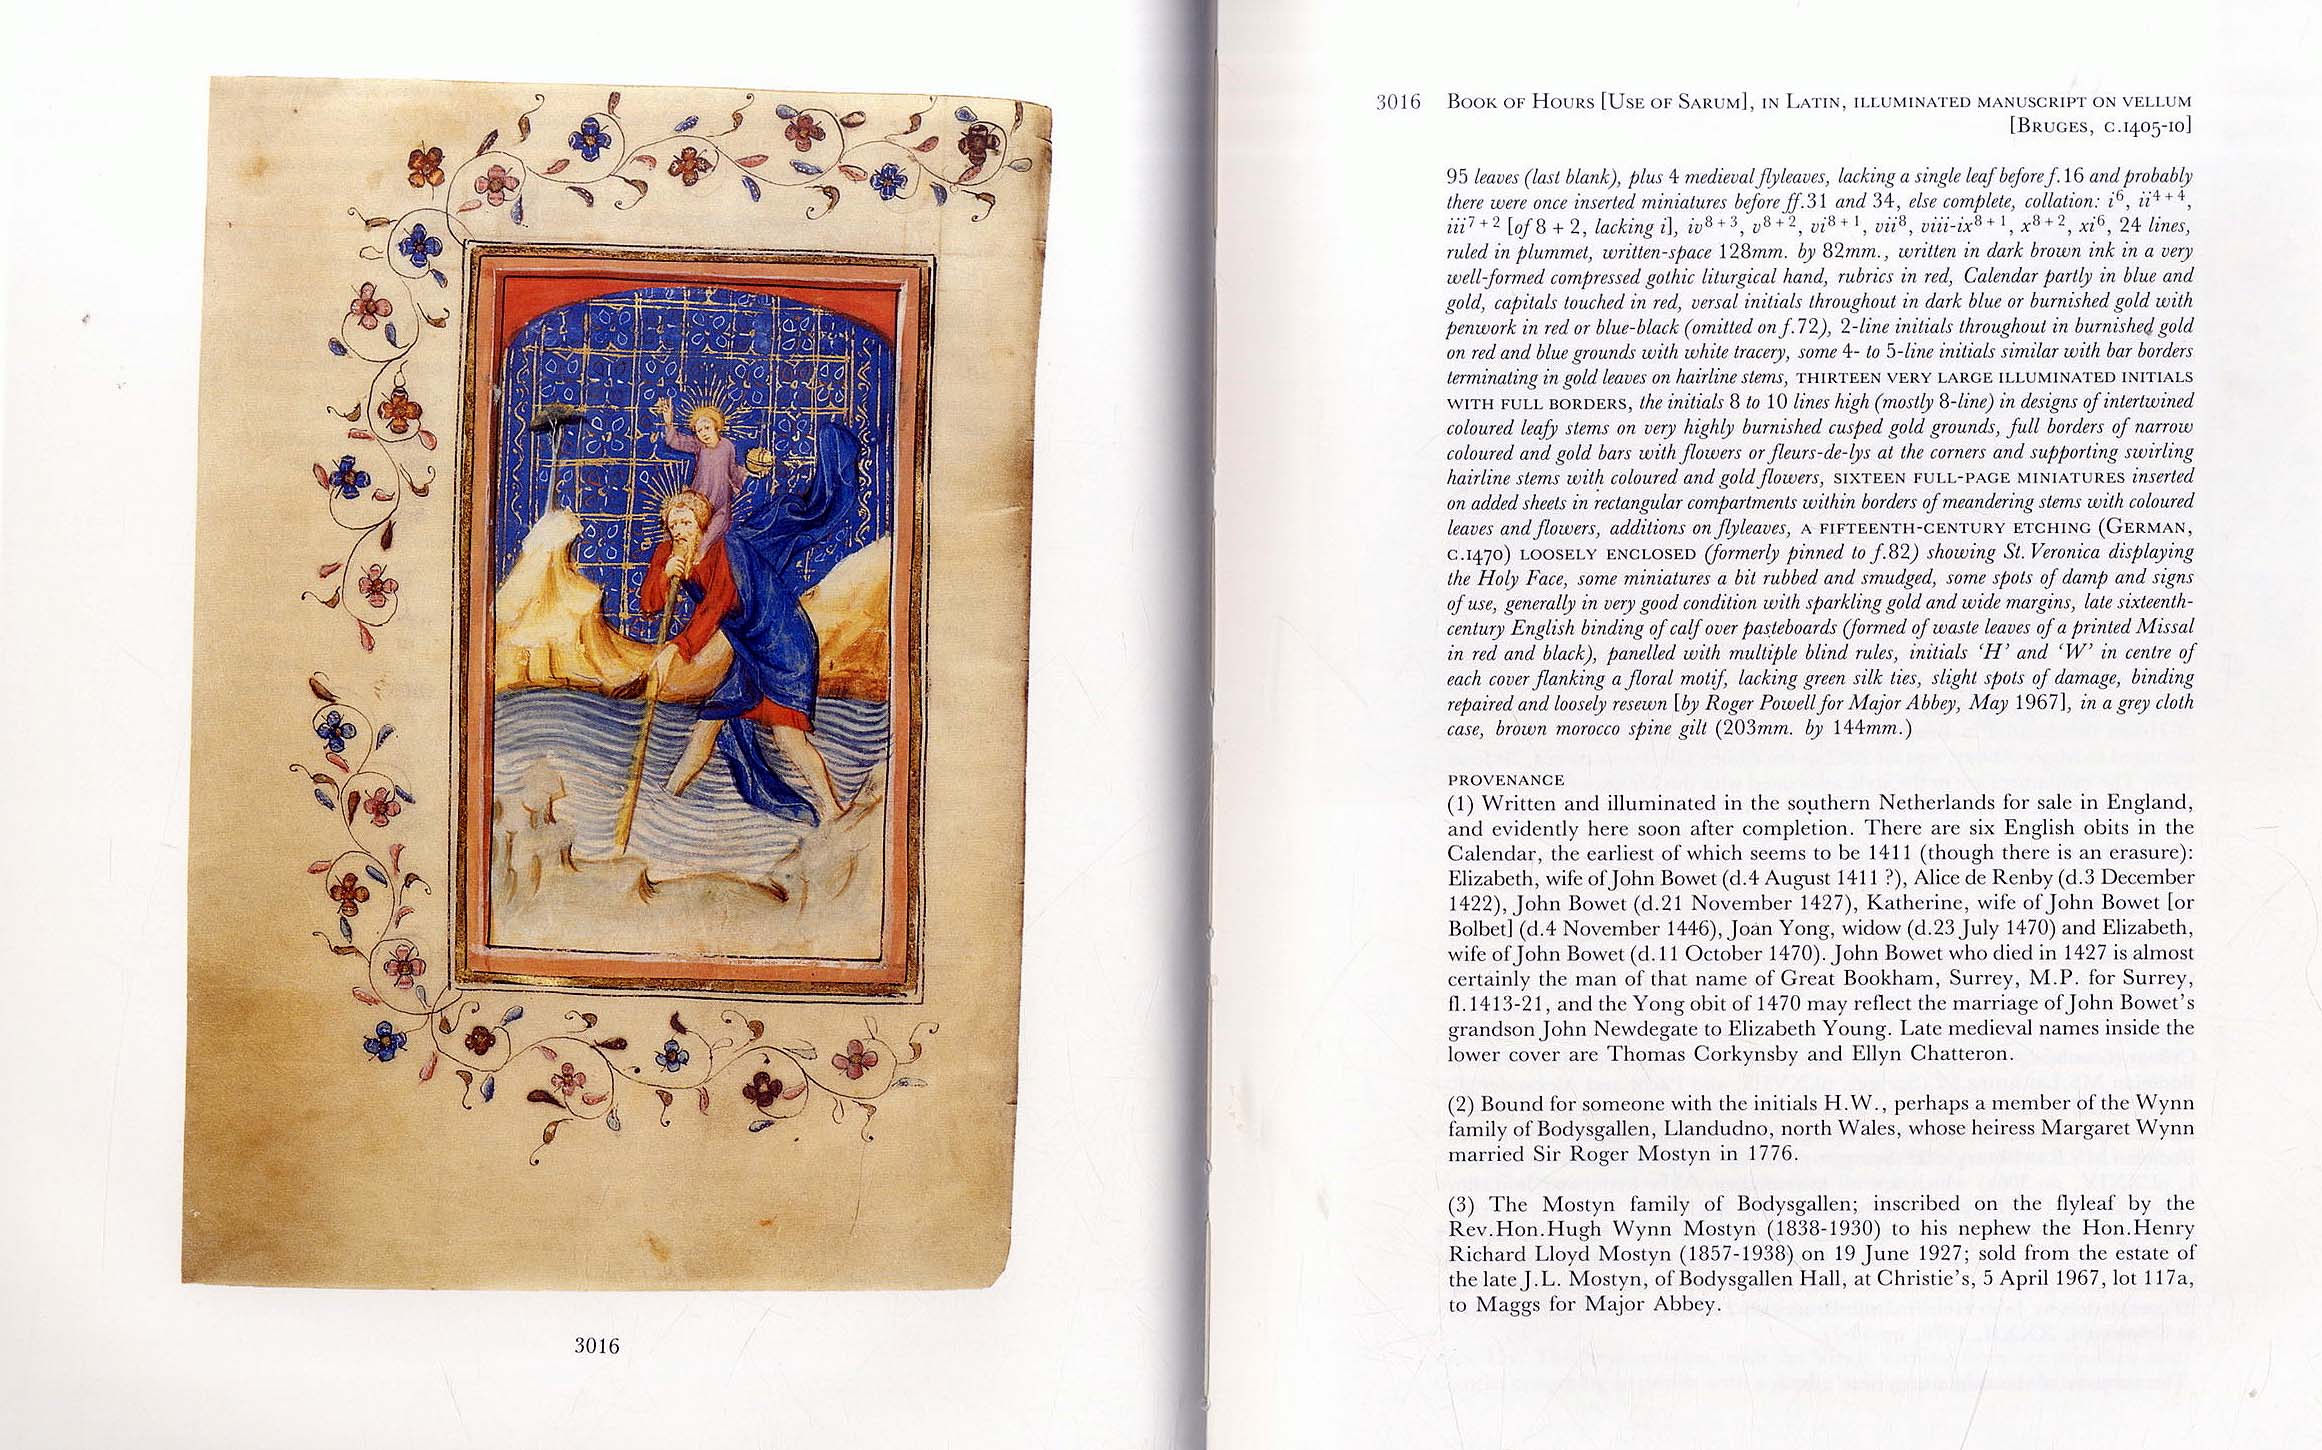 3016
3016 Book of Hours [Use of Sarum], in Latin, illuminated manuscript on vellum
[Bruges, c.1405-10]
95 leaves (last blank), plus 4 medieval flyleaves, lacking a single leaf before f.16 and probably
there were once inserted miniatures before ff.31 and 34, else complete, collation: i⁶, ii⁴⁺⁴,
iii⁷⁺² [of 8 + 2, lacking i], iv⁸⁺³, v⁸⁺², vi⁸⁺¹, vii⁸, viii-ix⁸⁺¹, x⁸⁺², xi⁶, 24 lines,
ruled in plummet, written-space 128mm. by 82mm., written in dark brown ink in a very
well-formed compressed gothic liturgical hand, rubrics in red, Calendar partly in blue and
gold, capitals touched in red, versal initials throughout in dark blue or burnished gold with
penwork in red or blue-black (omitted on f.72), 2-line initials throughout in burnished gold
on red and blue grounds with white tracery, some 4- to 5-line initials similar with bar borders
terminating in gold leaves on hairline stems, THIRTEEN VERY LARGE ILLUMINATED INITIALS
WITH FULL BORDERS, the initials 8 to 10 lines high (mostly 8-line) in designs of intertwined
coloured leafy stems on very highly burnished cusped gold grounds, full borders of narrow
coloured and gold bars with flowers or fleurs-de-lys at the corners and supporting swirling
hairline stems with coloured and gold flowers, SIXTEEN FULL-PAGE MINIATURES inserted
on added sheets in rectangular compartments within borders of meandering stems with coloured
leaves and flowers, additions on flyleaves, A FIFTEENTH-CENTURY ETCHING (GERMAN,
C.1470) LOOSELY ENCLOSED (formerly pinned to f.82) showing St. Veronica displaying
the Holy Face, some miniatures a bit rubbed and smudged, some spots of damp and signs
of use, generally in very good condition with sparkling gold and wide margins, late sixteenth-
century English binding of calf over pasteboards (formed of waste leaves of a printed Missal
in red and black), panelled with multiple blind rules, initials ‘H’ and ‘W’ in centre of
each cover flanking a floral motif, lacking green silk ties, slight spots of damage, binding
repaired and loosely resewn [by Roger Powell for Major Abbey, May 1967], in a grey cloth
case, brown morocco spine gilt (203mm. by 144mm.)
PROVENANCE
(1) Written and illuminated in the southern Netherlands for sale in England,
and evidently here soon after completion. There are six English obits in the
Calendar, the earliest of which seems to be 1411 (though there is an erasure):
Elizabeth, wife of John Bowet (d.4 August 1411 ?), Alice de Renby (d.3 December
1422), John Bowet (d.21 November 1427), Katherine, wife of John Bowet [or
Bolbet] (d.4 November 1446), Joan Yong, widow (d.23 July 1470) and Elizabeth,
wife of John Bowet (d.11 October 1470). John Bowet who died in 1427 is almost
certainly the man of that name of Great Bookham, Surrey, M.P. for Surrey,
fl.1413-21, and the Yong obit of 1470 may reflect the marriage of John Bowet’s
grandson John Newdegate to Elizabeth Young. Late medieval names inside the
lower cover are Thomas Corkynsby and Ellyn Chatteron.
(2) Bound for someone with the initials H.W., perhaps a member of the Wynn
family of Bodysgallen, Llandudno, north Wales, whose heiress Margaret Wynn
married Sir Roger Mostyn in 1776.
(3) The Mostyn family of Bodysgallen; inscribed on the flyleaf by the
Rev.Hon.Hugh Wynn Mostyn (1838-1930) to his nephew the Hon.Henry
Richard Lloyd Mostyn (1857-1938) on 19 June 1927; sold from the estate of
the late J.L. Mostyn, of Bodysgallen Hall, at Christie’s, 5 April 1967, lot 117a,
to Maggs for Major Abbey.